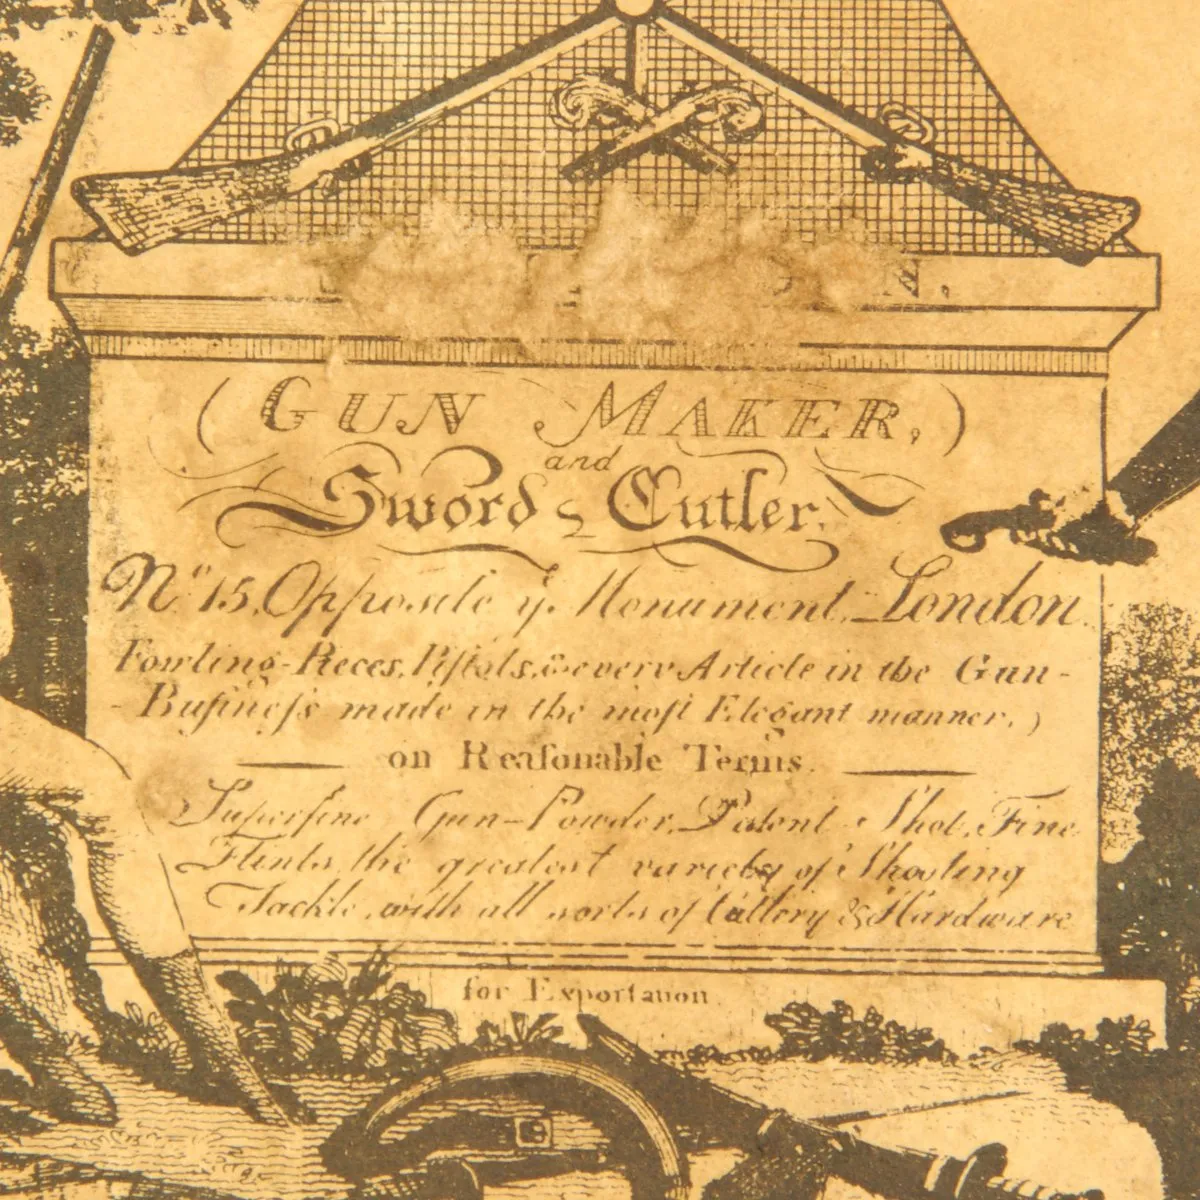 (GUN MAKER,)
and
Sword Cutler,
No. 15, Opposite ye. Monument, London.
Fowling-Pieces, Piſtols, & every Article in the Gun-
-Buſineſs made in the moſt Elegant manner,)
on Reaſonable Terms.
Superfine Gun-Powder, Patent Shot, Fine
Flints, the greatest variety of Shooting
Tackle, with all sorts of Cutlery & Hardware
for Exportation